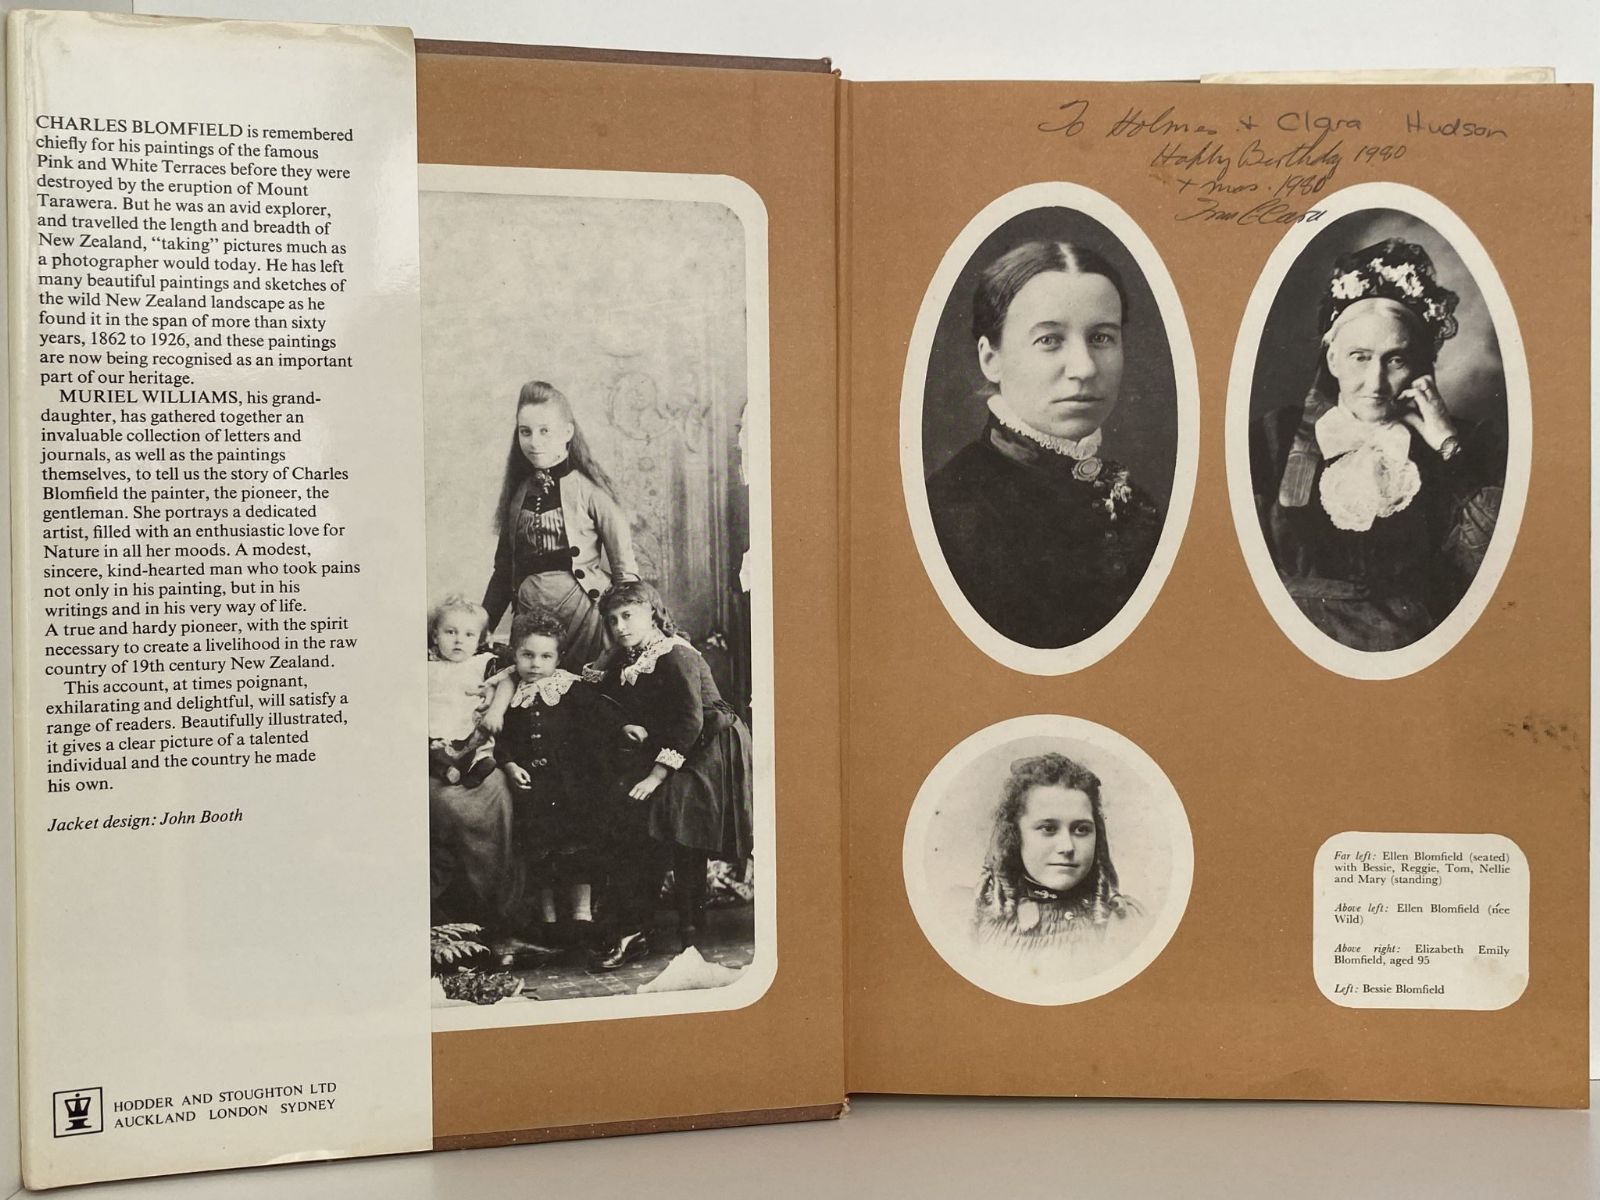 CHARLES BLOMFIELD is remembered
chiefly for his paintings of the famous
Pink and White Terraces before they were
destroyed by the eruption of Mount
Tarawera. But he was an avid explorer,
and travelled the length and breadth of
New Zealand, “taking” pictures much as
a photographer would today. He has left
many beautiful paintings and sketches of
the wild New Zealand landscape as he
found it in the span of more than sixty
years, 1862 to 1926, and these paintings
are now being recognised as an important
part of our heritage.
MURIEL WILLIAMS, his grand-
daughter, has gathered together an
invaluable collection of letters and
journals, as well as the paintings
themselves, to tell us the story of Charles
Blomfield the painter, the pioneer, the
gentleman. She portrays a dedicated
artist, filled with an enthusiastic love for
Nature in all her moods. A modest,
sincere, kind-hearted man who took pains
not only in his painting, but in his
writings and in his very way of life.
A true and hardy pioneer, with the spirit
necessary to create a livelihood in the raw
country of 19th century New Zealand.
This account, at times poignant,
exhilarating and delightful, will satisfy a
range of readers. Beautifully illustrated,
it gives a clear picture of a talented
individual and the country he made
his own.
Jacket design: John Booth
HODDER AND STOUGHTON LTD
AUCKLAND LONDON SYDNEY
To Holmes + Clara Hudson
Happy Birthday 1980
+ mas. 1980
Clara
Far left: Ellen Blomfield (seated)
with Bessie, Reggie, Tom, Nellie
and Mary (standing)
Above left: Ellen Blomfield (née
Wild)
Above right: Elizabeth Emily
Blomfield, aged 95
Left: Bessie Blomfield